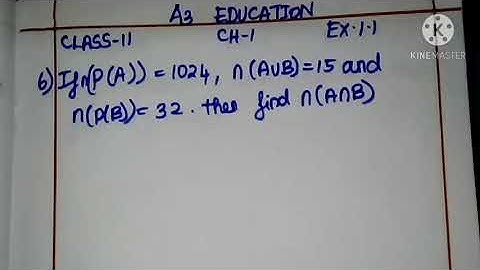 A3 EDUCATION
CLASS-11 CH-1 EX.1.1
K
KINEMASTER
6) If n(P(A)) = 1024, n(A∪B)=15 and
n(P(B))= 32. then find n(A∩B)